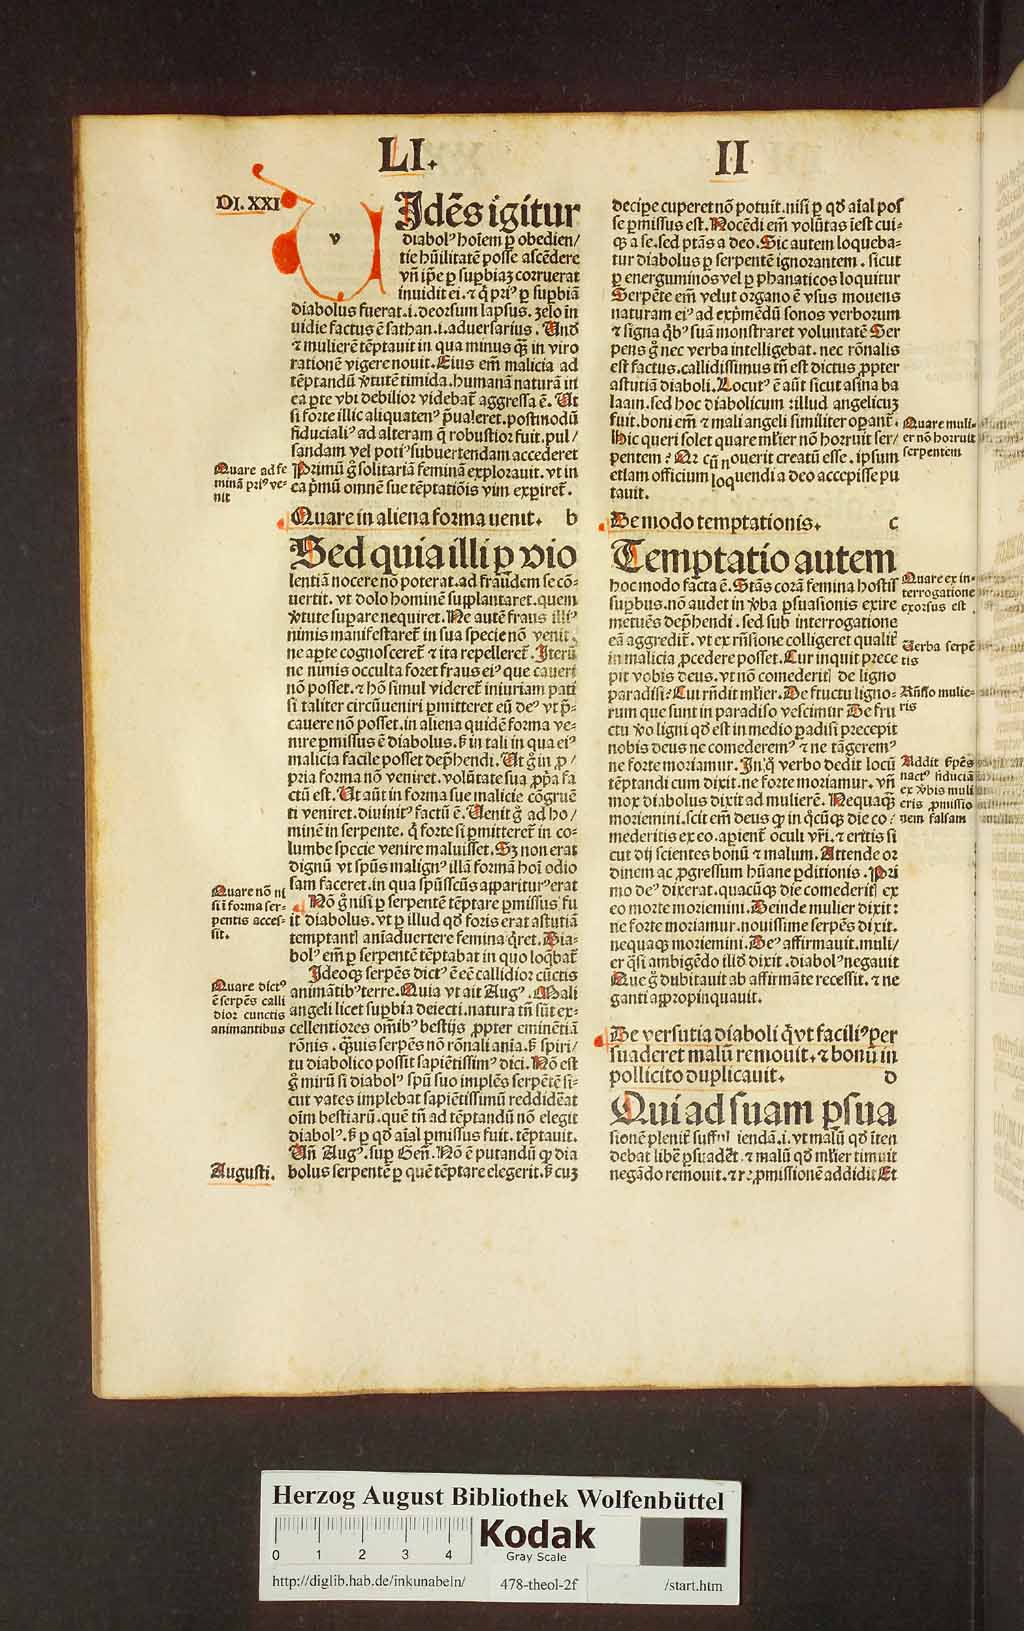 LI.
II
DI. XXI
v
Jdēs igitur
diabolꝰ hoīem ꝑ obedien/
tie hūilitatē posse ascēdere
vñ ip̄e ꝑ suꝑbiaꝫ corruerat
inuidit ei. ⁊ q̇ priꝰ ꝑ suꝑbiā
diabolus fuerat .i. deorsum lapsus. zelo in
uidie factus ē sathan .i. aduersarius. Unđ
⁊ mulierē tēptauit in qua minus ꝙ̄ in viro
rationē vigere nouit. Eius em̄ malicia ad
tēptandū v̓tutē timida. humanā naturā in
ea ꝑte vbi debilior videbat᷑ aggressa ē. Ut
si forte illic aliquatenꝰ p̄ualeret. postmodū
fiducialiꝰ ad alteram q̄ robustior fuit. pul/
sandam vel potiꝰ subuertendam accederet
Primū g̊ solitariā feminā explorauit. vt in
ea p̓mū omnē sue tēptatiōis vim exꝑiret᷑.
Quare ad fe
minā priꝰ ve-
nit
Quare in aliena forma uenit. b
Sed quia illi ꝑ vio
lentiā nocere nō poterat. ad fraudem se cō-
uertit. vt dolo hominē supplantaret. quem
v̓tute suꝑare nequiret. Ne autē fraus illiꝰ
nimis manifestaret᷑ in sua specie nō venit.
ne aꝑte cognosceret᷑ ⁊ ita repelleret᷑. Iterū
ne nimis occulta foret fraus eiꝰ que caueri
nō posset. ⁊ hō simul videret᷑ iniuriam pati
si taliter circūueniri ꝑmitteret eū deꝰ vt p̄-
cauere nō posset. in aliena quidē forma ve-
nire ꝑmissus ē diabolus. ẜ in tali in qua eiꝰ
malicia facile posset dep̄hendi. Ut g̊ in ꝓ/
pria forma nō veniret. volūtate sua ꝓp̓a fa
ctū est. Ut aūt in forma sue malicie cōgruē
ti veniret. diuinitꝰ factū ē. Uenit g̊ ad ho/
minē in serpente. q̇ forte si ꝑmitteret᷑ in co-
lumbe specie venire maluisset. Sꝫ non erat
dignū vt spūs malignꝰ illā formā hoī odio
sam faceret. in qua spūsscūs appariturꝰ erat
Nō g̊ nisi ꝑ serpentē tēptare ꝑmissus fu
it diabolus. vt ꝑ illud qđ foris erat astutiā
temptantꝭ aīaduertere femina q̓ret. Dia-
bolꝰ em̄ ꝑ serpentē tēptabat in quo loq̄bat᷑
Quare nō ni
si ī forma ser-
pentis acces-
sit.
Ideoqꝫ serpēs dictꝰ ē eē callidior cūctis
animātibꝰ terre. Quia vt ait Augꝰ. Mali
angeli licet suꝑbia deiecti. natura tn̄ sūt ex-
cellentiores om̄ibꝰ bestijs ꝓpter eminētiā
rōnis. q̄uis serpēs nō rōnali aīa. ẜ spiri/
tu diabolico possit sapiētissimꝰ dici. Nō est
g̊ mirū si diabolꝰ spū suo implēs serpētē si-
cut vates implebat sapiētissimū reddideat
oīm bestiarū. quē tn̄ ad tēptandū nō elegit
diabolꝰ. ẜ ꝑ qđ aīal ꝑmissus fuit. tēptauit.
Uñ Augꝰ. suꝑ Geñ. Nō ē putandū ꝙ dia
bolus serpentē ꝑ quē tēptare elegerit. ẜ cuꝫ
Quare dictꝰ
ē serpēs calli
dior cunctis
animantibus
Augusti.
deciꝑe cuperet nō potuit. nisi ꝑ qđ aīal pos
se ꝑmissus est. Nocēdi em̄ volūtas īest cui-
qꝫ a se. sed ptās a deo. Sic autem loqueba-
tur diabolus ꝑ serpentē ignorantem. sicut
ꝑ energuminos vel ꝑ phanaticos loquitur
Serpēte em̄ velut organo ē vsus mouens
naturam eiꝰ ad exp̓mēdū sonos verborum
⁊ signa q̓bꝰ suā monstraret voluntatē Ser
pens g̊ nec verba intelligebat. nec rōnalis
est factus. callidissimus tn̄ est dictus ꝓpter
astutiā diaboli. Locutꝰ ē aūt sicut asina ba
laam. sed hoc diabolicum: illud angelicuꝫ
fuit. boni em̄ ⁊ mali angeli similiter oꝑant᷑.
Hic queri solet quare ml̓ier nō horruit ser/
pentem? Qr cū nouerit creatū esse. ipsum
etiam officium loquendi a deo accepisse pu
tauit.
Quare muli-
er nō horruit
serpentem
De modo temptationis. c
Temptatio autem
hoc modo facta ē. Stās corā femina hostis
suꝑbus. nō audet in v̓ba ꝑsuasionis exire
metuēs dep̄hendi. sed sub interrogatione
eā aggredit᷑. vt ex rn̄sione colligeret qualit᷑
in malicia ꝓcedere posset. Cur inquit prece
pit vobis deus. vt nō comederitꝭ de ligno
paradisi? Cui rn̄dit ml̓ier. De fructu ligno-
rum que sunt in paradiso vescimur De fru
ctu v̓o ligni qđ est in medio paradisi precepit
nobis deus ne comederemꝰ ⁊ ne tāgeremꝰ
ne forte moriamur. In q̊ verbo dedit locū
tēptandi cum dixit. ne forte moriamur. vñ
mox diabolus dixit ad mulierē. Nequaqꝫ
moriemini. scit em̄ deus ꝙ in q̊cūqꝫ die co/
mederitis ex eo. aꝑient᷑ oculi vr̄i. ⁊ eritis si
cut dij scientes bonū ⁊ malum. Attende or
dinem ac ꝓgressum hūane ꝑditionis. Pri
mo deꝰ dixerat. quacūqꝫ die comederitꝭ ex
eo morte moriemini. Deinde mulier dixit:
ne forte moriamur. nouissime serpēs dixit.
nequaqꝫ moriemini. Deꝰ affirmauit. muli/
er q̄si ambigēdo illđ dixit. diabolꝰ negauit
Que g̊ dubitauit ab affirmāte recessit. ⁊ ne
ganti appropinquauit.
Quare ex in-
terrogatione
exorsus est.
Uerba serpē
tis
Rn̄sio mulie-
ris
Addit ẜpēs
nactꝰ fiduciā
ex v̓bis muli
eris ꝓmissio
nem falsam
De versutia diaboli q̊ vt faciliꝰ per
suaderet malū remouit. ⁊ bonū in
pollicito duplicauit. d
Qui ad suam ꝑsua
sionē plenit᷑ iendā .i. vt malū qđ īten
debat libē ꝑsuadet. ⁊ malū qđ ml̓ier timuit
negādo remouit. ⁊ re ꝓmissionē addidit Et
Herzog August Bibliothek Wolfenbüttel
0 1 2 3 4
Kodak
Gray Scale
http://diglib.hab.de/inkunabeln/ 478-theol-2f /start.htm